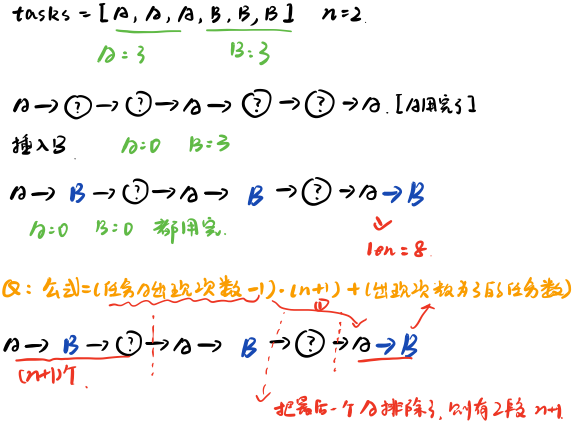 tasks = [A, A, A, B, B, B] n=2.
A=3 B=3
A→?→?→A→?→?→A. [A用完了]
插入B. A=0 B=3
A→B→?→A→B→?→A→B
A=0 B=0 都用完.
len=8.
Q: 公式=(任务A出现次数-1)·(n+1)+(出现次数为3的任务数)
①
A→B→?→A→B→?→A→B
(n+1)个.
把最后一个A排除了, 则有2段 n+1.